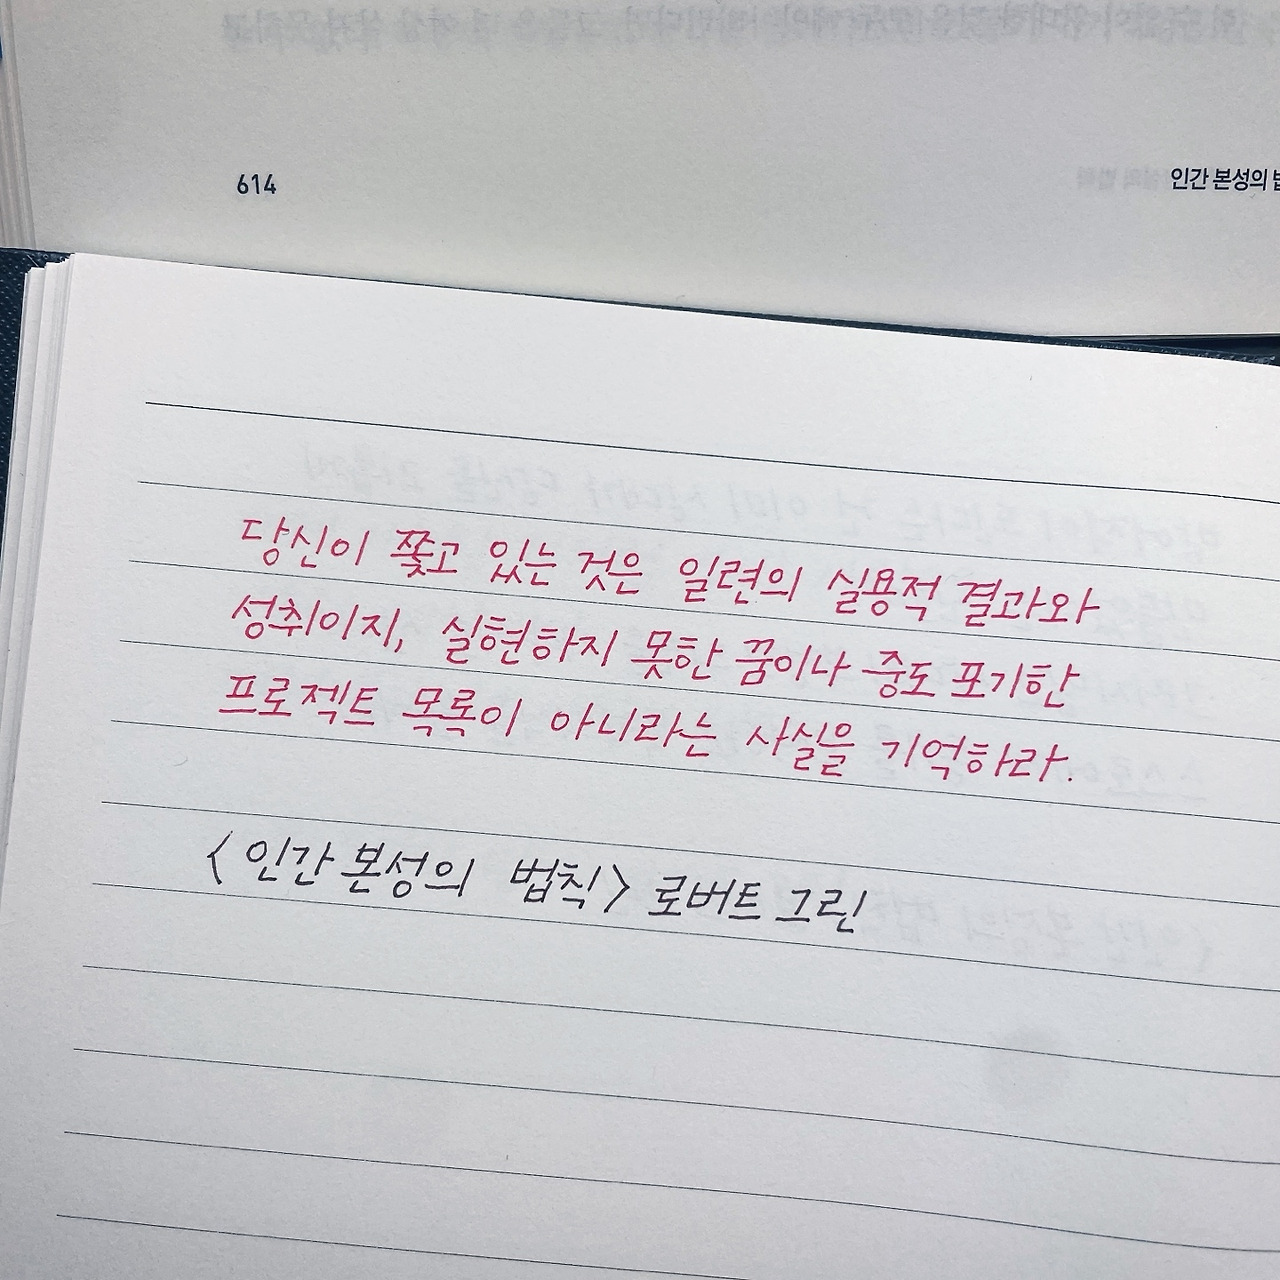 614
인간 본성의
당신이 쫓고 있는 것은 일련의 실용적 결과와
성취이지, 실현하지 못한 꿈이나 중도 포기한
프로젝트 목록이 아니라는 사실을 기억하라.
<인간 본성의 법칙> 로버트 그린